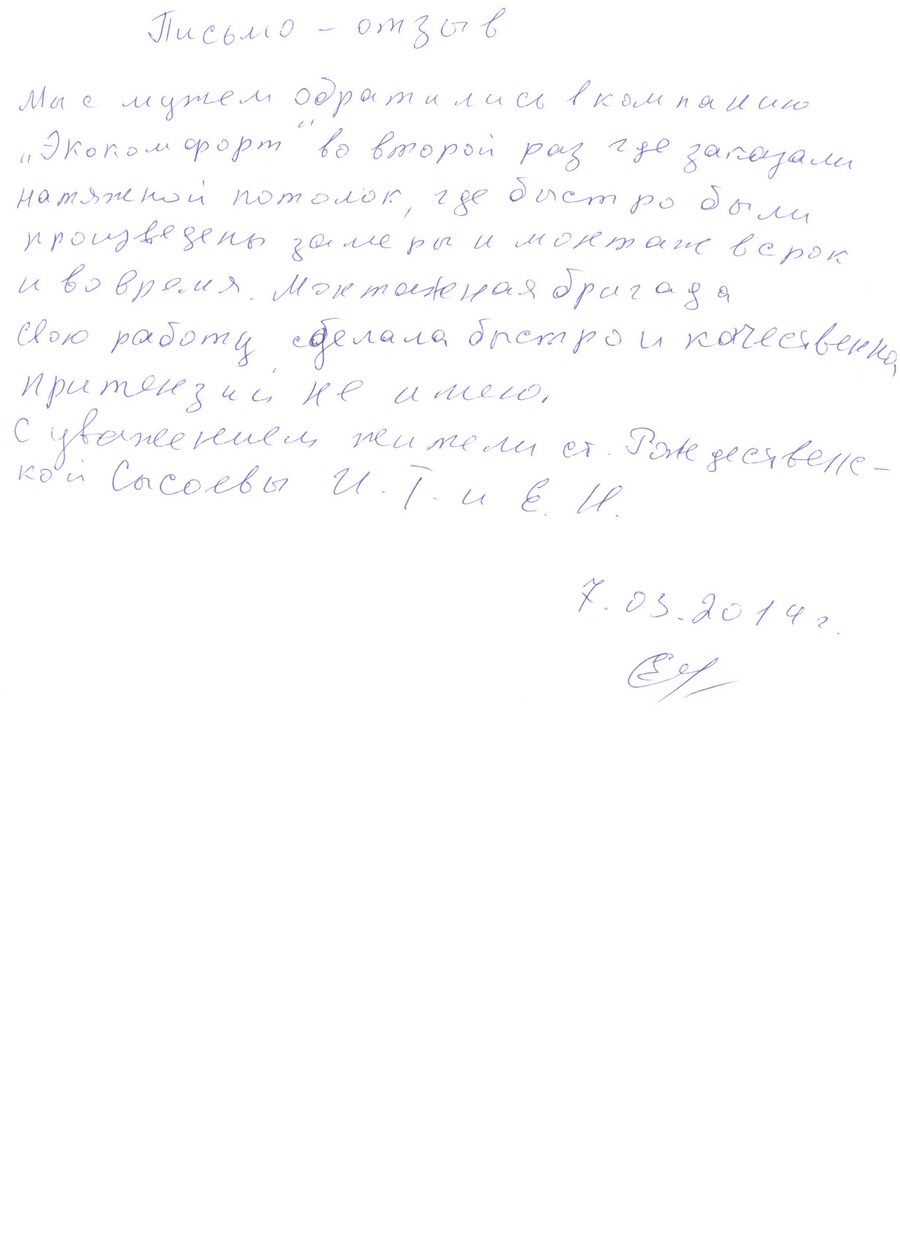 Письмо – отзыв
Мы с мужем обратились в компанию
„Экокомфорт" во второй раз где заказали
натяжной потолок, где быстро были
произведены замеры и монтаж в срок
и во время. Монтажная бригада
свою работу сделала быстро и качественно,
притензий не имею.
С уважением жители ст. Рождественс-
кой Сысоевы И. Т. и Е. Н.
7.03.2014 г.